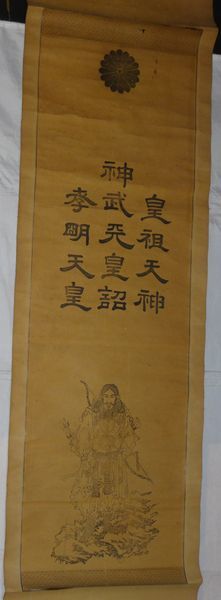 皇祖天神
神武天皇詔
孝明天皇